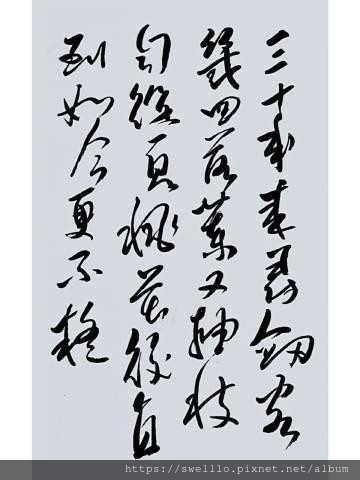 三十年來尋劍客
幾回落葉又抽枝
自從一見桃花後直
到如今更不疑
https://swelllo.pixnet.net/album